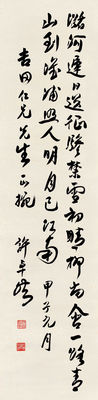 潞河連日送征驂禁雪初晴柳尚含一路青
山到淮浦照人明月已江南 甲子九月
吉田仁兄先生正腕 許卓